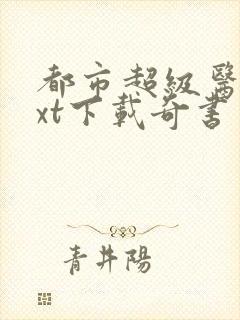 都市超级醫
xt下載奇書
青井陽